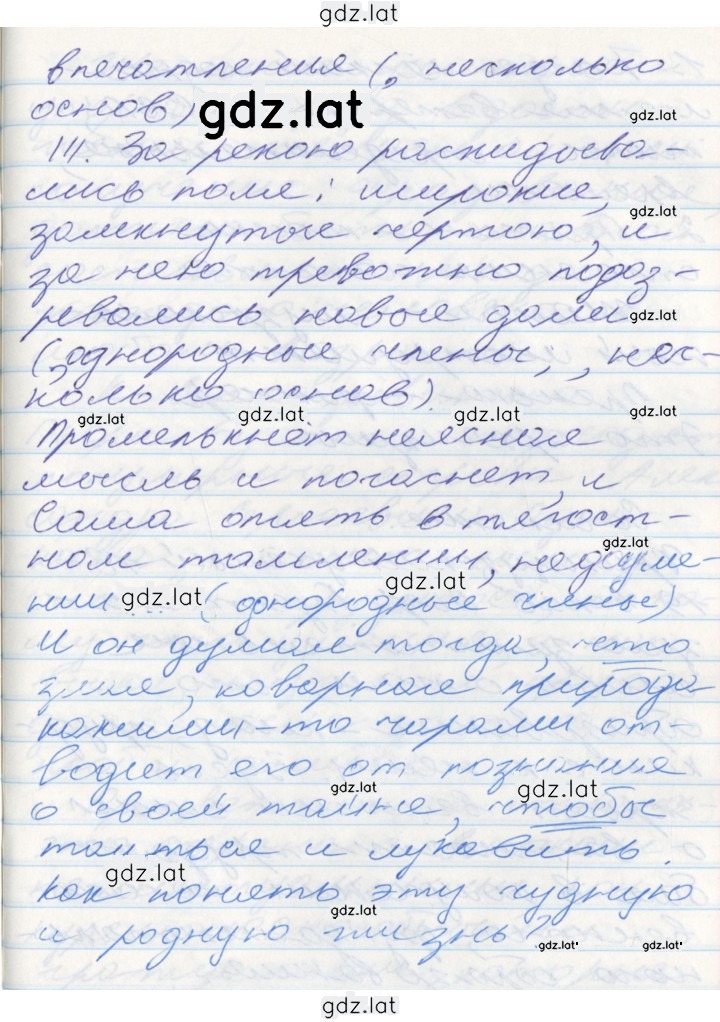 gdz.lat
впечатления (, несколько
основ) gdz.lat
gdz.lat
III. За рекою раскидыва-
лись поля: широкие,
gdz.lat
замкнутые чертою, и
за нею тревожно подоз-
ревались новые дали gdz.lat
(, однородные члены; , нес-
колько основ).
gdz.lat gdz.lat gdz.lat gdz.lat
Промелькнёт неясная
мысль и погаснет, и
Саша опять в тягост-
ном томлении, недоуме-
gdz.lat
нии gdz.lat ... (однородные члены) gdz.lat
И он думал тогда, что
злая, коварная природа
какими-то чарами от-
водит его от познания
gdz.lat
о своей тайне, чтобы gdz.lat
таиться и лукавить.
gdz.lat
Как понять эту чудную
gdz.lat
и родную жизнь?
gdz.lat' gdz.lat'
gdz.lat